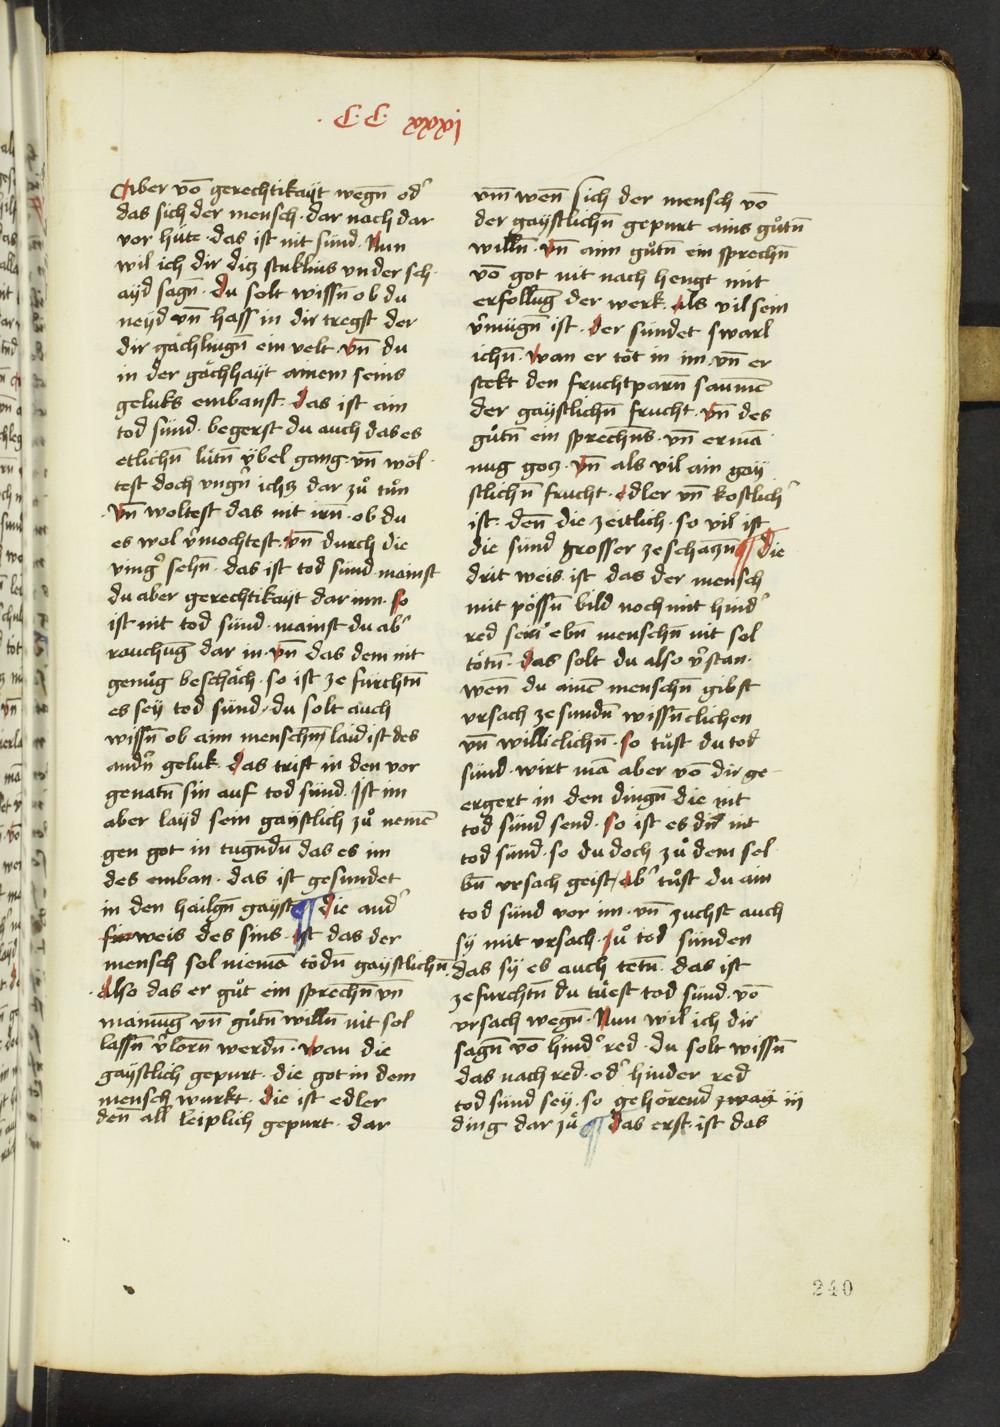 .C.C. xxxj
Aber vō gerechtikayt wegn̄ od᷎
das sich der mensch · dar nach dar
vor hüte · das ist nit sünd · Nun
wil ich dir diz stuklins vnder sch
ayd sagn̄ · du solt wissn̄ ob du
neyd vn̄ hass in dir tregst der
dir gächlingn̄ ein velt · vn̄ du
in der gächhayt ainem seins
geluks enbanst · das ist ain
tod sünd · begerst du auch das es
etlichn̄ lütn̄ ÿbel gang · vn̄ wöl
test doch vngn̄ ichz dar zuͦ tuͦn
vn̄ woltest das nit irn̄ · ob du
es wol v᷎mochtest · vn̄ durch die
ving᷎ sehn̄ · das ist tod sünd · mainst
du aber gerechtikayt dar inn · so
ist nit tod sünd · mainst du ab᷎
rauchūg dar in · vn̄ das dem nit
genuͦg beschäch · so ist ze fürchtn̄
es sey tod sünd · du solt auch
wissn̄ ob aim menschn̄ laid ist des
andn̄ geluk · das trift in den vor
genātn̄ sin auf tod sünd · Ist im
aber layd sein gaystlich zuͦ nemē
gen got in tugndn̄ das es im
des enban · das ist gesundet
in den hailgn̄ gayst ¶ die and᷎
weis des sins · ist das der
mensch sol niemā tödn̄ gaystlichn̄
also das er guͦt ein sprechn̄ vn̄
mainūg vn̄ guͦtn̄ willn̄ nit sol
lassn̄ v᷎lorn̄ werdn̄ · wan die
gaystlich gepurt · die got in dem
mensch würkt · die ist edler
den̄ all leiplich gepurt · dar
vm̄ wen̄ sich der mensch vō
der gaystlichn̄ gepurt ains guͦtn̄
willn̄ · vn̄ aim guͦtn̄ ein sprechn̄
vō got nit nach hengt mit
erfollūg der werk · als vil sein
v᷎mügn̄ ist · der sündet swarl
ichn̄ · wan er töt in im · vn̄ er
stekt den fruchtparn̄ saumē
der gaystlichn̄ frucht · vn̄ des
guͦtn̄ ein sprechens · vn̄ ermā
nug goz · vn̄ als vil ain gay
stlichn̄ frucht · edler vn̄ kostlich᷎
ist · den̄ die zeitlich · so vil ist
die sünd grosser ze schaczn̄ ¶ die
drit weis ist das der mensch
mit pössn̄ bild noch mit hind᷎
red sein ebn̄ menschn̄ nit sol
tötn̄ · das solt du also v᷎stan ·
wen̄ du ainē menschn̄ gibst
vrsach ze sundn̄ wissn̄clichen
vn̄ williclichn̄ · so tuͦst du tod
sünd · wirt mā aber vō dir ge
ergert in den dingn̄ die nit
tod sünd send · so ist es dir nit
tod sünd · so du doch zuͦ dem sel
bn̄ vrsach geist / ab᷎ tuͦst du ain
tod sünd vor im · vn̄ zuchst auch
sy mit vrsach · zuͦ tod sünden
das sy es auch tetn̄ · das ist
ze furchtn̄ du tuͤest tod sünd · vō
vrsach wegn̄ · Nun wil ich dir
sagn̄ vō hind᷎ red · du solt wissn̄
das nach red · od᷎ hinder red
tod sünd sey · so gehörend zway iij
ding dar zuͦ ¶ das erst · ist das
240